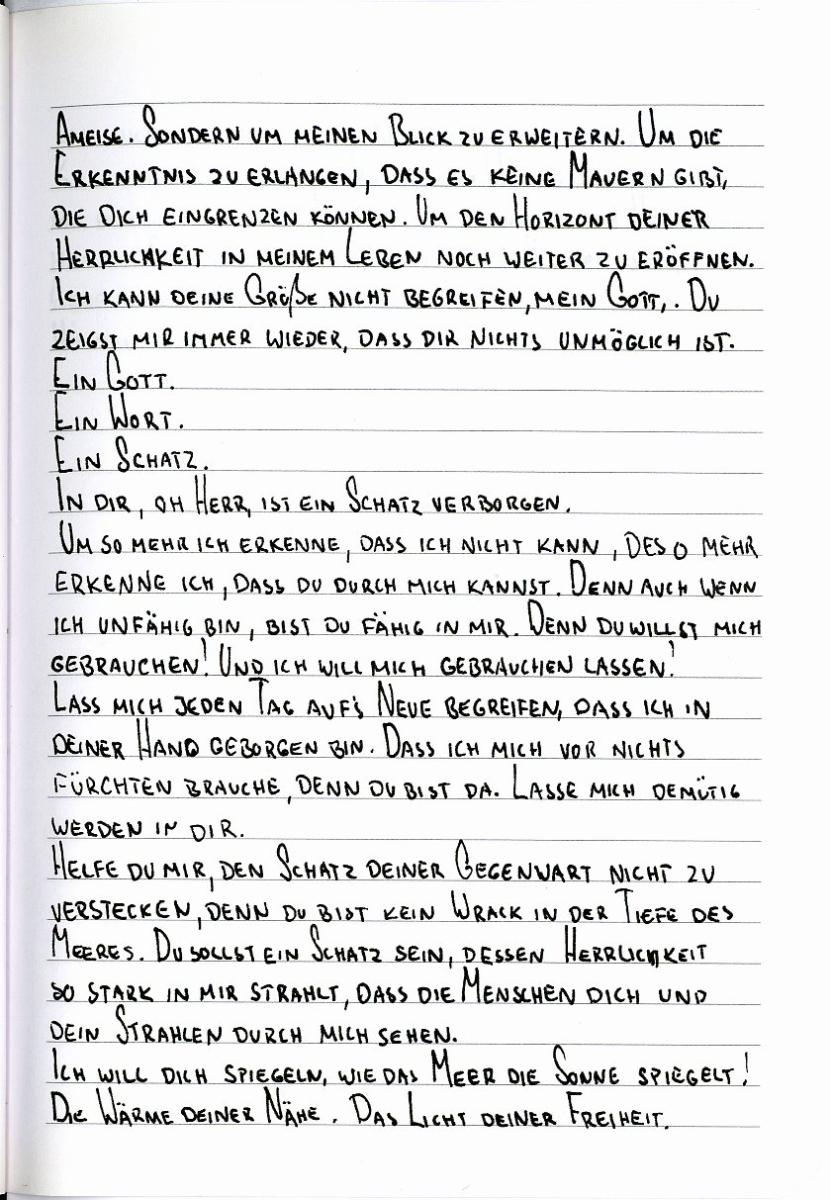 Ameise. Sondern um meinen Blick zu erweitern. Um die
Erkenntnis zu erlangen, dass es keine Mauern gibt,
die Dich eingrenzen können. Um den Horizont Deiner
Herrlichkeit in meinem Leben noch weiter zu eröffnen.
Ich kann Deine Größe nicht begreifen, mein Gott,. Du
zeigst mir immer wieder, dass Dir nichts unmöglich ist.
Ein Gott.
Ein Wort.
Ein Schatz.
In Dir, oh Herr, ist ein Schatz verborgen.
Um so mehr ich erkenne, dass ich nicht kann, des o mehr
erkenne ich, dass Du durch mich kannst. Denn auch wenn
ich unfähig bin, bist Du fähig in mir. Denn Du willst mich
gebrauchen! Und ich will mich gebrauchen lassen!
Lass mich jeden Tag auf's Neue begreifen, dass ich in
Deiner Hand geborgen bin. Dass ich mich vor nichts
fürchten brauche, denn Du bist da. Lasse mich demütig
werden in Dir.
Helfe Du mir, den Schatz Deiner Gegenwart nicht zu
verstecken, denn Du bist kein Wrack in der Tiefe des
Meeres. Du sollst ein Schatz sein, dessen Herrlichkeit
so stark in mir strahlt, dass die Menschen Dich und
Dein Strahlen durch mich sehen.
Ich will Dich spiegeln, wie das Meer die Sonne spiegelt!
Die Wärme Deiner Nähe. Das Licht Deiner Freiheit.